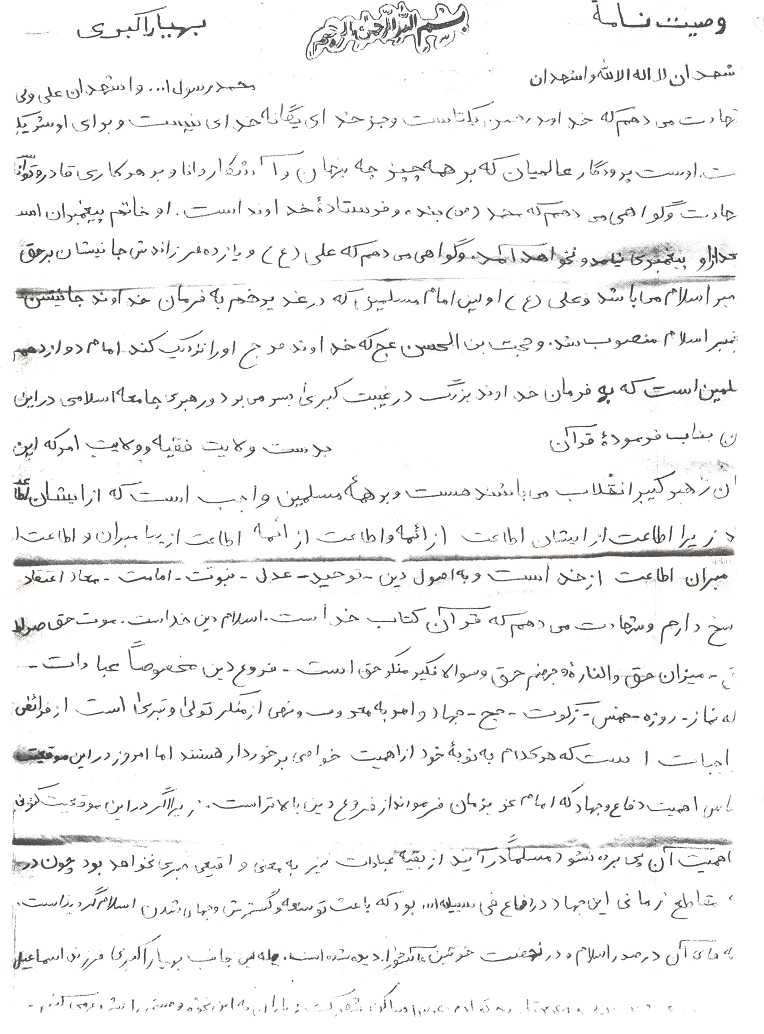 وصیت نامه بسم الله الرحمن الرحیم بهیار اکبری
شهد ان لا اله الا الله و اشهد ان محمد رسول ا... و اشهد ان علی ولی
هادت می دهم که خداوند رحمن یکتاست و جز خدای یگانه خدای نیست و برای او شریک
ت. اوست پروردگار عالمیان که بر همه چیز چه پنهان و آشکار دانا و بر هر کاری قادر و توانا
هادت و گواهی می دهم که محمد (ص) بنده و فرستاده خداوند است. او خاتم پیغمبران است
بعد از او پیغمبری نیامد و نخواهد آمد. و گواهی می دهم که علی (ع) و یازده فرزاندش جانیشان بر حق
مبر اسلام می باشد و علی (ع) اولین امام مسلمین که در غدیر خم به فرمان خداوند جانیشن
غمبر اسلام منصوب شد. و حجت بن الحسن عج که خداوند فرج او را نزدیک کند امام دوازدهم
سلمین است که به فرمان خداوند بزرگ در غیبت کبری بسر می برد و رهبری جامعه اسلامی در این
ن بناب فرمودۀ قرآن بدست ولایت فقیه و ولایت امر که این
ان رهبر کبیر انقلاب می باشند هست و بر همۀ مسلمین واجب است که از ایشان اطاعت
د زیرا اطاعت از ایشان اطاعت از ائمه و اطاعت از ائمه اطاعت از پیامبران و اطاعت از
مبران اطاعت از خدا است و به اصول دین - توحید - عدل - نبوت - امامت - معاد اعتقاد
سخ دارم و شهادت می دهم که قرآن کتاب خدا است. اسلام دین خداست. موت حق صراط
ق - میزان حق والنارة و جهنم حق و سوالا نکیر منکر حق است - فروع دین مخصوصاً عبادات -
له نماز - روزه - خمس - زکوت - حج - جهاد و امر به معروف و نهی از منکر تولی و تبری است از فرائض
اجبات است که هر کدام به نوبۀ خود از اهیت خواصی برخوردار هستند اما امروز در این موقعیت
اس اهمیت دفاع و جهاد که امام عزیزمان فرمودند از فروع دین بالاتر است. زیرا اگر در این موقعیت کنونی
اهمیت آن پی برده نشود مسلماً در آیند از بقیه عبادات نیز به معنی واقعی خبری نخواهد بود چون در
مقاطع زمانی این جهاد و دفاع فی سبیل ا... بود که باعث توسعه و گسترش و جهانی شدن اسلام گردیده است.
نه های آن در صدر اسلام و در نهضت خونین دیده شده است. اینجانب بهیار اکبری فرزند اسماعیل